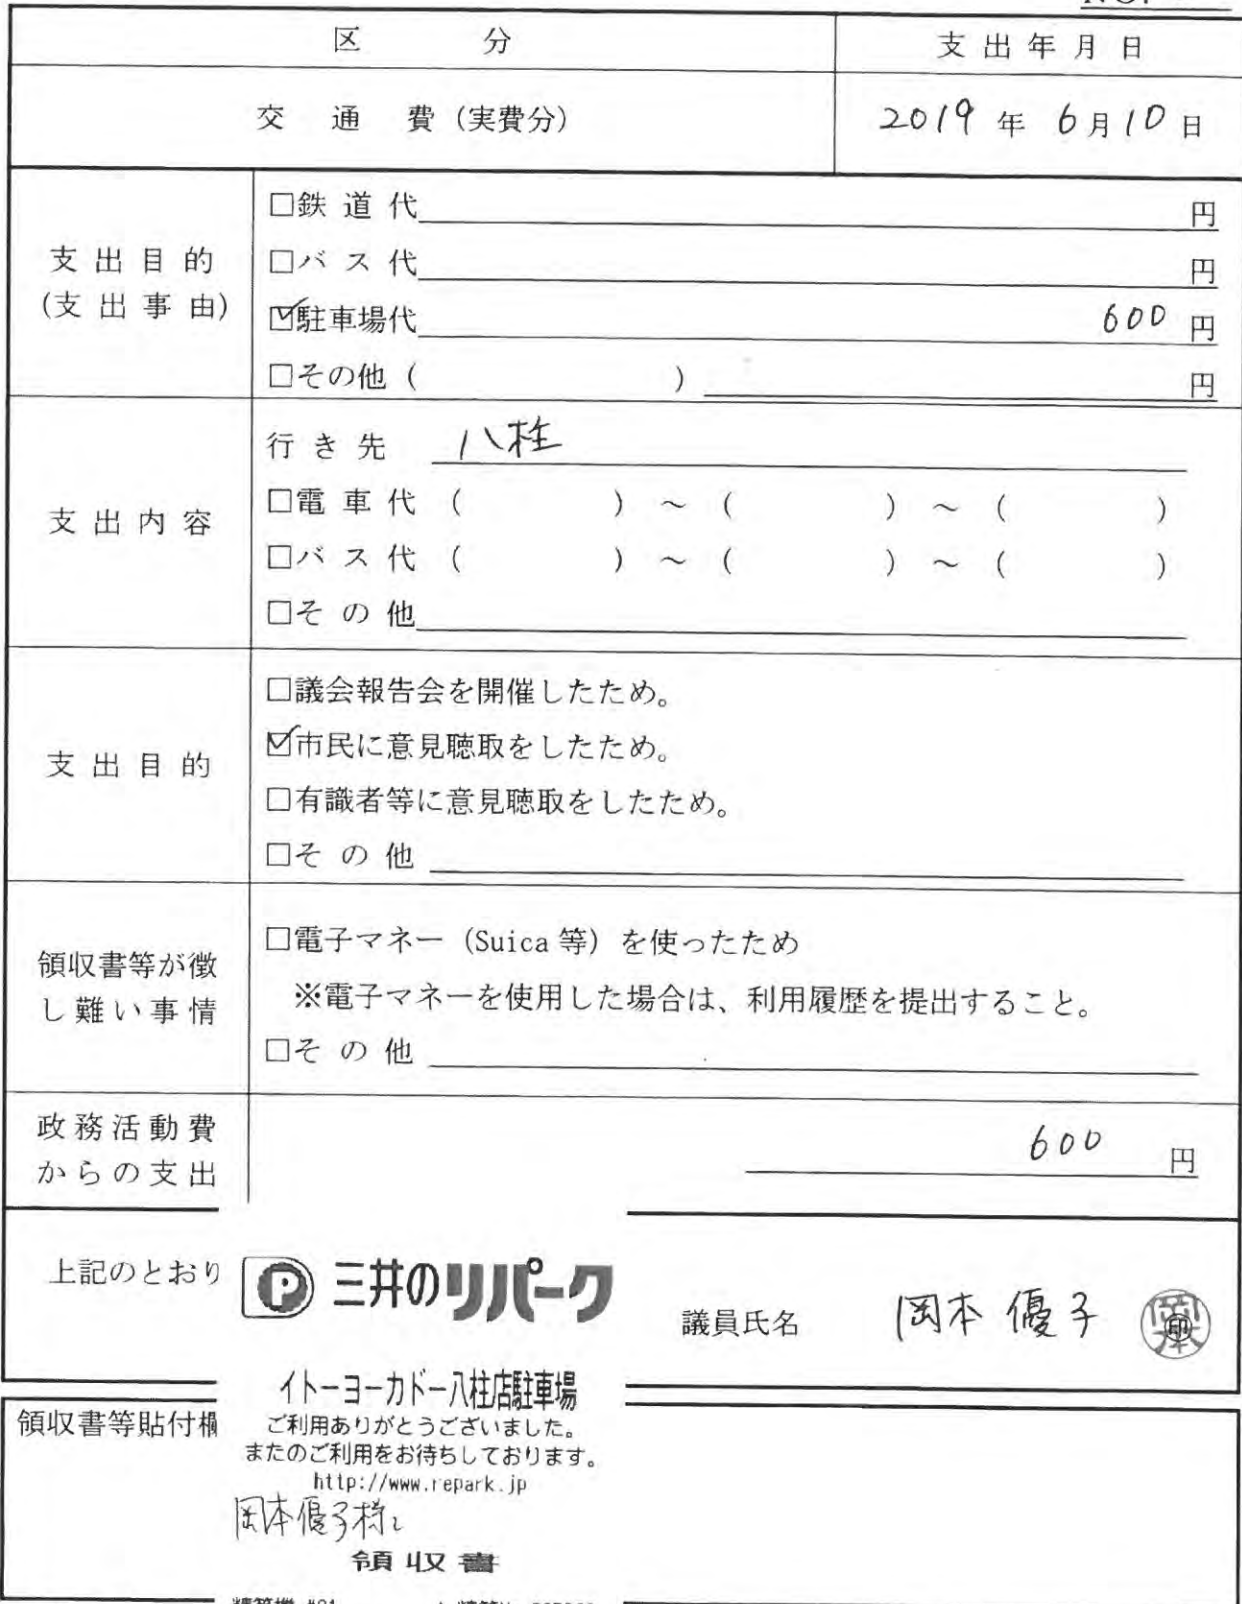 NO.
区 分 支出年月日
交 通 費 (実費分) 2019 年 6月10日
支出目的
(支出事由)
□鉄 道 代 円
□バ ス 代 円
☑駐車場代 600 円
□その他 ( ) 円
支出内容
行き先 八柱
□電 車 代 ( ) ~ ( ) ~ ( )
□バ ス 代 ( ) ~ ( ) ~ ( )
□そ の 他
支出目的
□議会報告会を開催したため。
☑市民に意見聴取をしたため。
□有識者等に意見聴取をしたため。
□そ の 他
領収書等が徴
し難い事情
□電子マネー (Suica 等) を使ったため
※電子マネーを使用した場合は、利用履歴を提出すること。
□そ の 他
政務活動費
からの支出
600 円
上記のとおり
P 三井のリパーク
議員氏名 岡本 優子 印
岡本
イトーヨーカドー八柱店駐車場
領収書等貼付欄
ご利用ありがとうございました。
またのご利用をお待ちしております。
http://www.repark.jp
岡本優子様
領収書